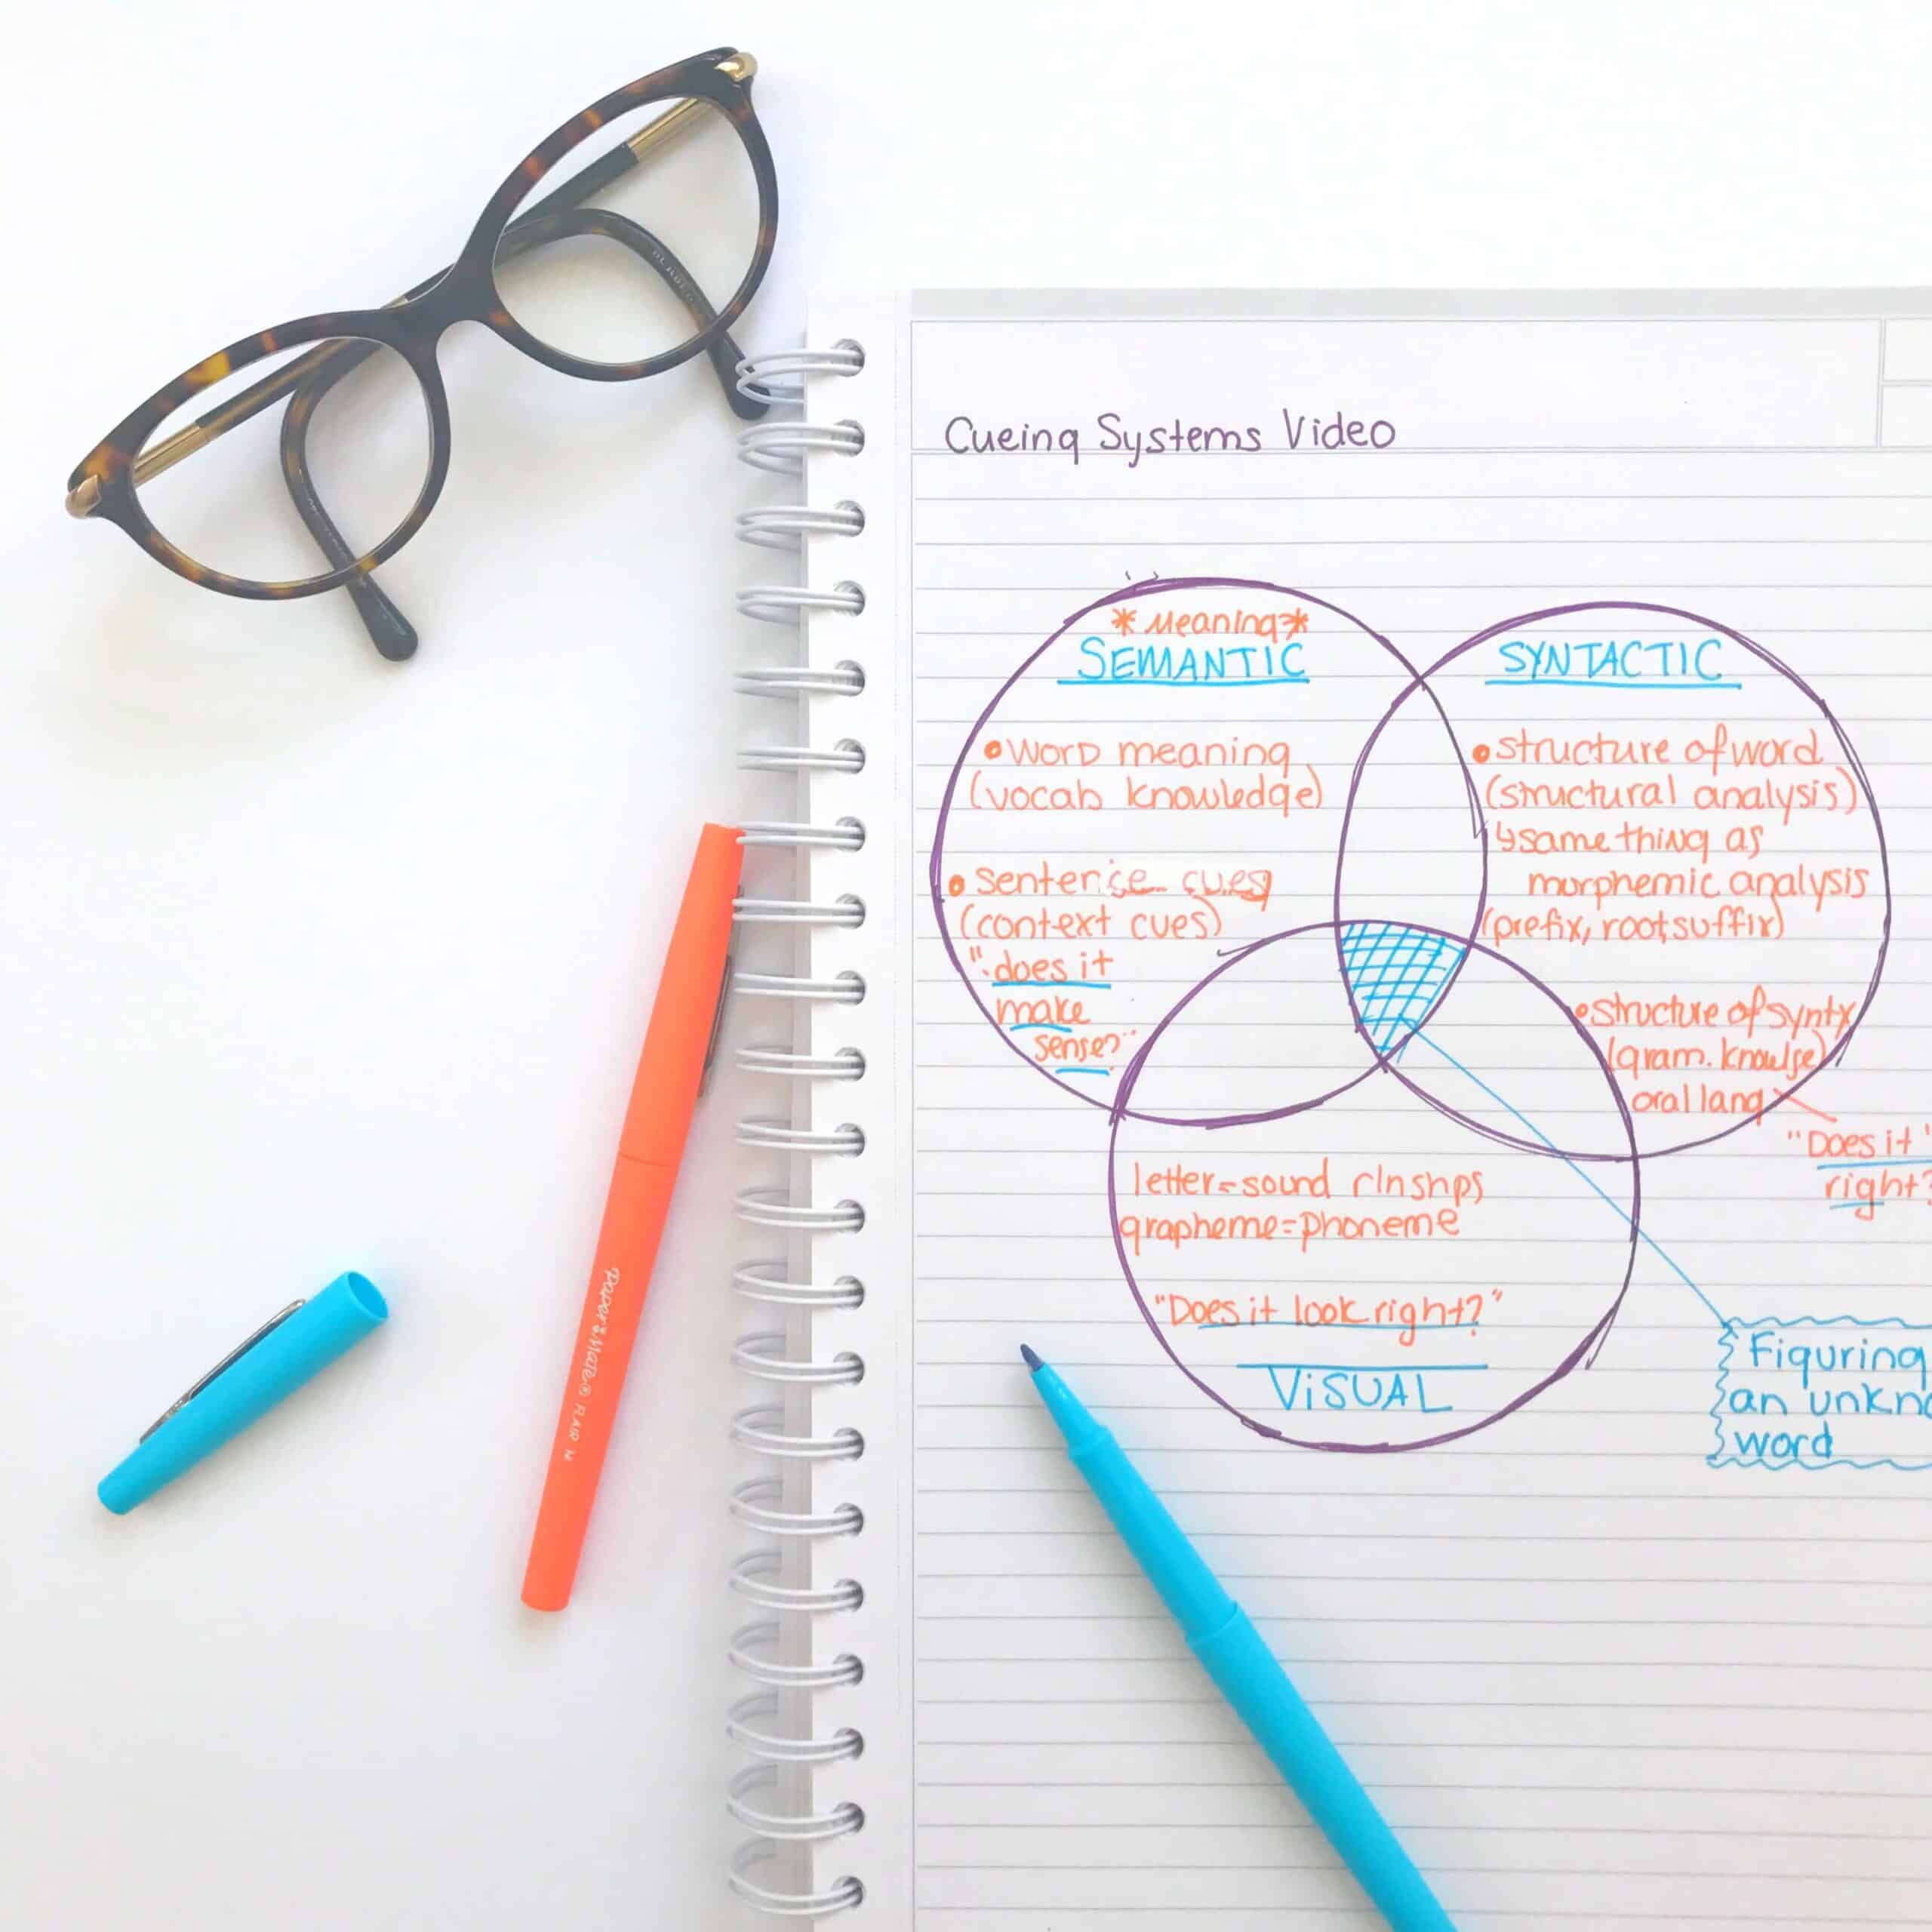 Cueing Systems Video
*Meaning*
SEMANTIC
• word meaning
(vocab knowledge)
• sentence cues
(context cues)
"does it
make
sense?"
SYNTACTIC
• structure of word
(structural analysis)
↳ same thing as
morphemic analysis
(prefix, root, suffix)
• structure of syntx
(gram. knowlse)
oral lang
"Does it
right?
letter = sound rlnshps
grapheme = phoneme
"Does it look right?"
VISUAL
Figuring
an unkno
word
Paper Mate® FLAIR M